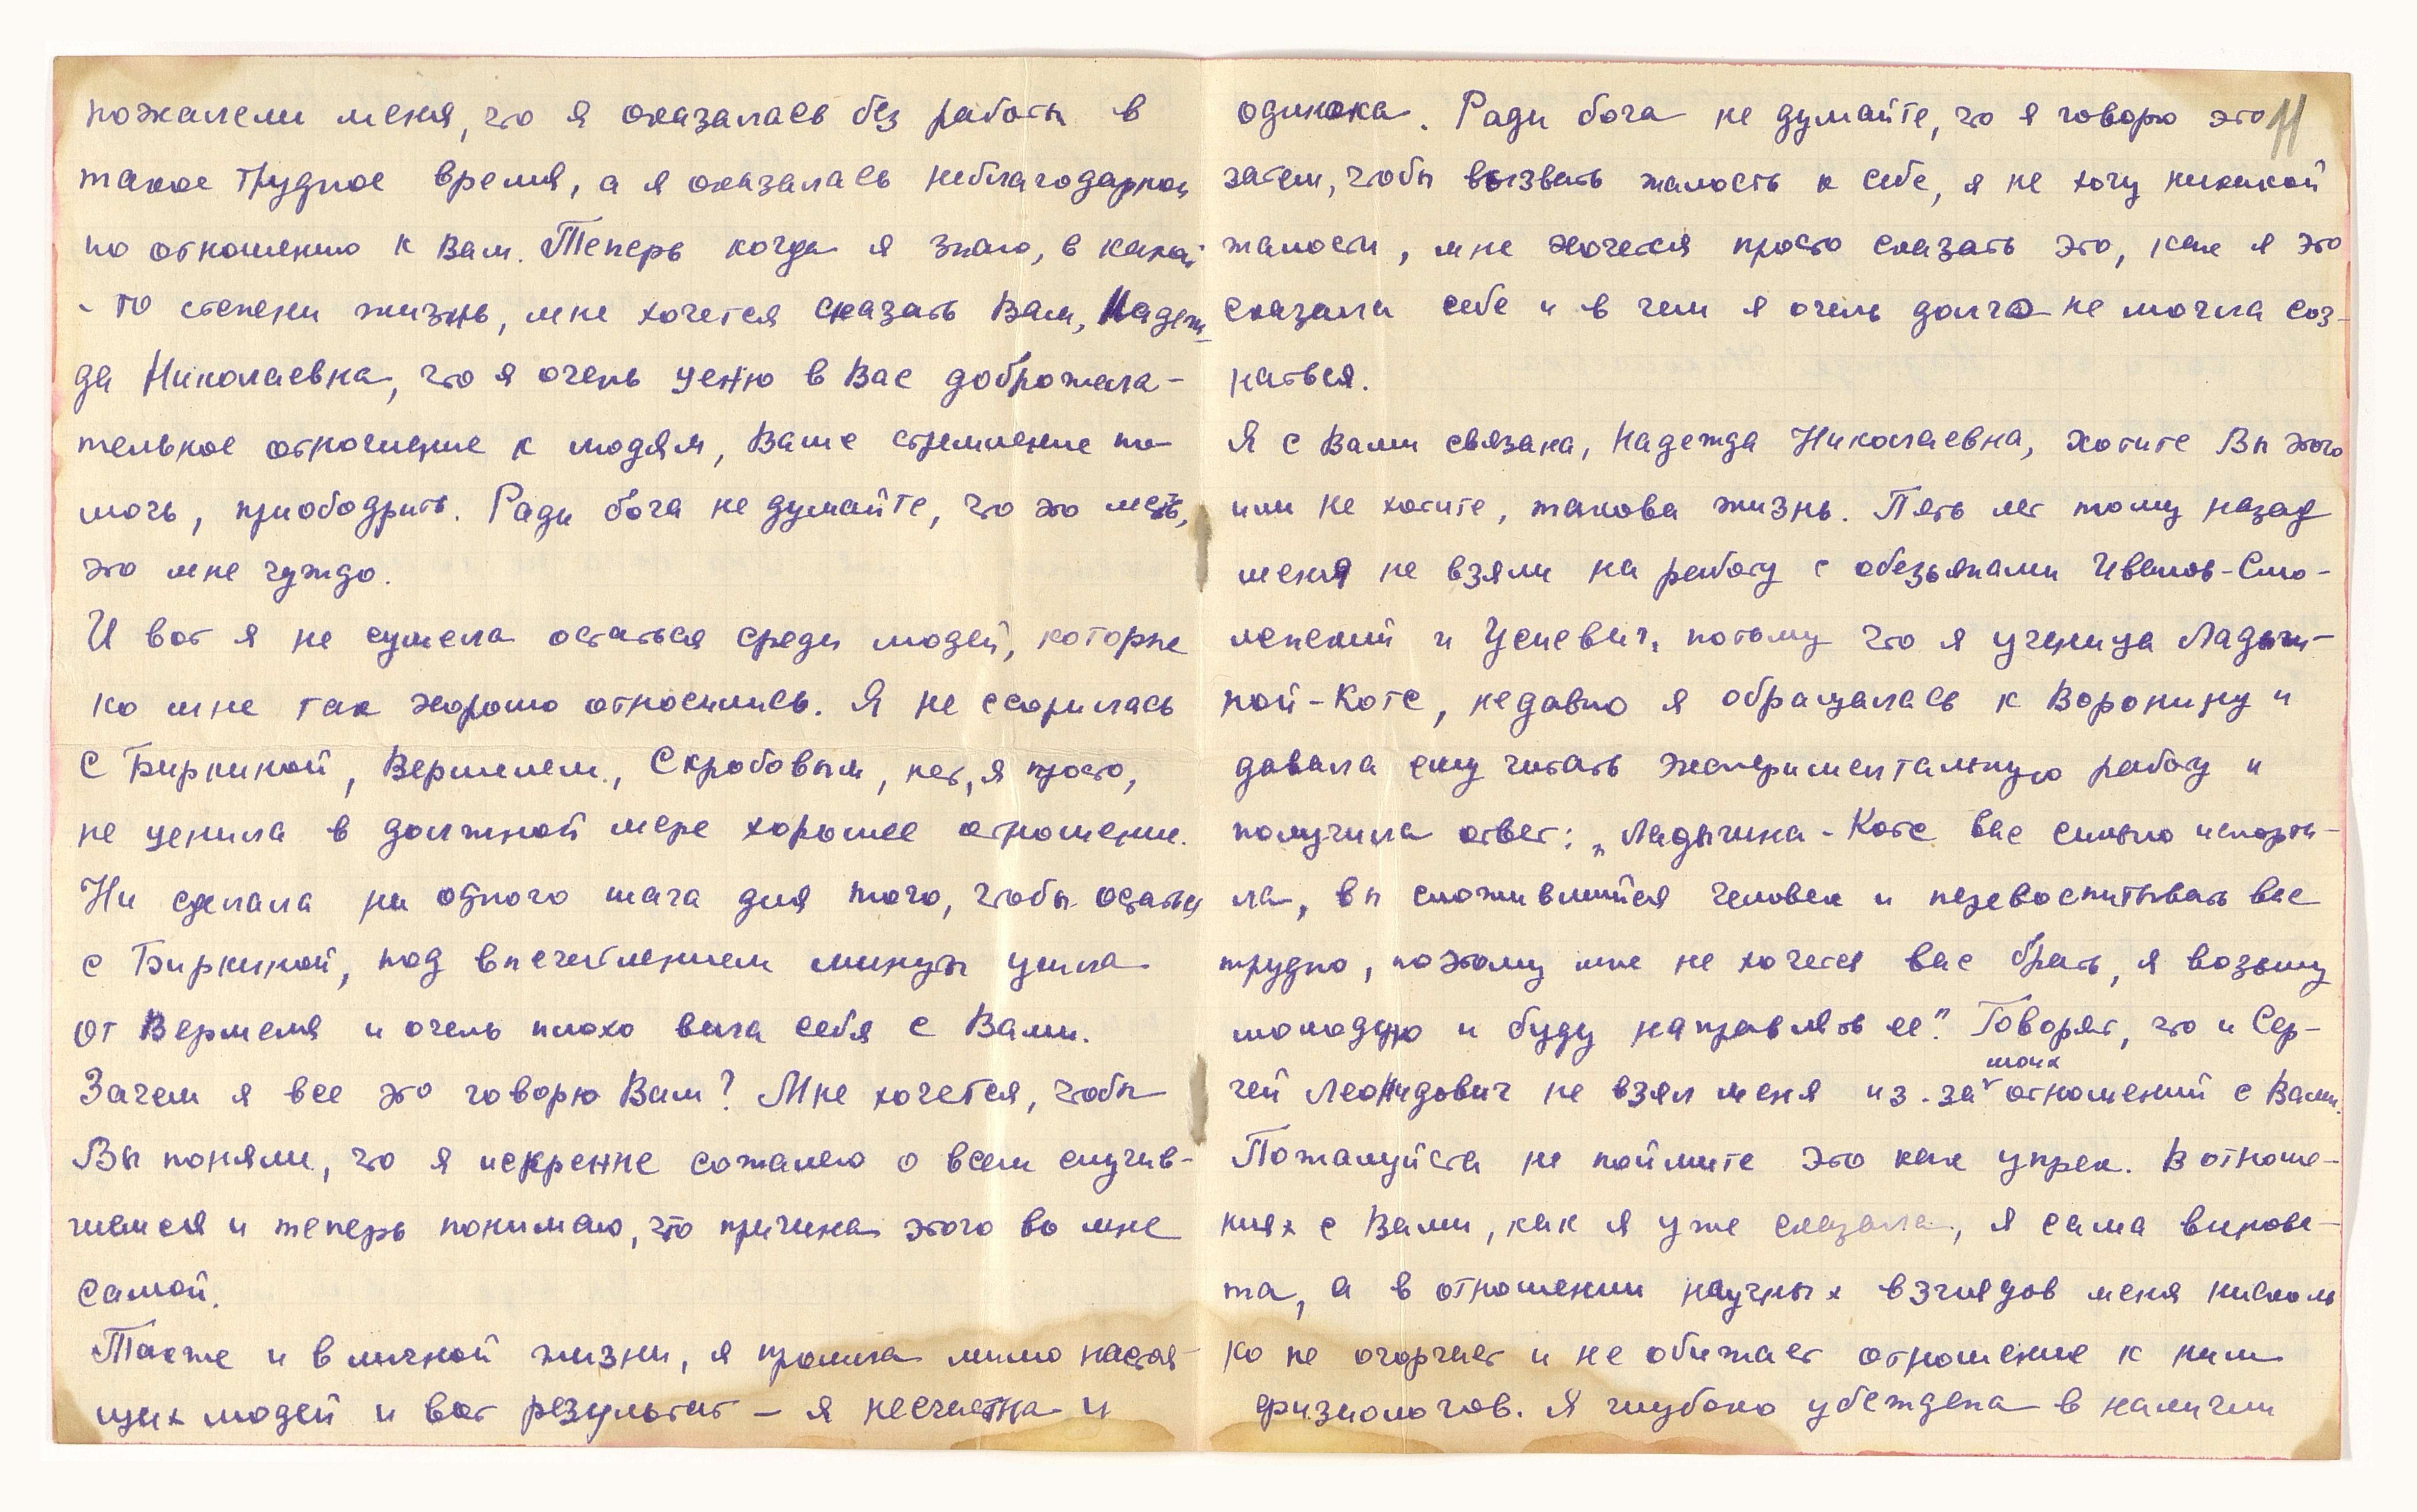 пожалели меня, что я оказалась без работы в
такое трудное время, а я оказалась неблагодарной
по отношению к Вам. Теперь когда я знаю, в какой
-то степени жизнь, мне хочется сказать Вам, Надеж-
да Николаевна, что я очень ценю в Вас доброжела-
тельное отношение к людям, Ваше стремление по-
мочь, приободрить. Ради бога не думайте, что это лесть,
это мне чуждо.
И вот я не сумела остаться среди людей, которые
ко мне так хорошо относились. Я не ссорилась
с Биркиной, Вермелем, Скробовым, нет, я просто,
не ценила в должной мере хорошее отношение.
Ни сделала ни одного шага для того, чтобы остаться
с Биркиной, под впечатлением минуты ушла
от Вермеля и очень плохо вела себя с Вами.
Зачем я все это говорю Вам? Мне хочется, чтобы
Вы поняли, что я искренне сожалею о всем случив-
шемся и теперь понимаю, что причина этого во мне
самой.
Также и в личной жизни, я прошла мимо настоя-
щих людей и вот результат – я несчастна и
одинока. Ради бога не думайте, что я говорю это 11
затем, чтобы вызвать жалость к себе, я не хочу никакой
жалости, мне хочется просто сказать это, как я это
сказала себе и в чем я очень долго не могла соз-
наться.
Я с Вами связана, Надежда Николаевна, хотите Вы этого
или не хотите, такова жизнь. Пять лет тому назад
меня не взяли на работу с обезьянами Иванов-Смо-
ленский и Усиевич, потому что я ученица Ладыги-
ной-Котс, недавно я обращалась к Воронину и
давала ему читать экспериментальную работу и
получила ответ: „Ладыгина-Котс вас сильно испорти-
ла, вы сложившийся человек и перевоспитывать вас
трудно, поэтому мне не хочется вас брать, я возьму
молодую и буду направлять ее". Говорят, что и Сер-
гей Леонидович не взял меня из-за моих отношений с Вами.
Пожалуйста не поймите это как упрек. В отноше-
ниях с Вами, как я уже сказала, я сама винова-
та, а в отношении научных взглядов меня нисколь
ко не огорчает и не обижает отношение к ним
физиологов. Я глубоко убеждена в наличии